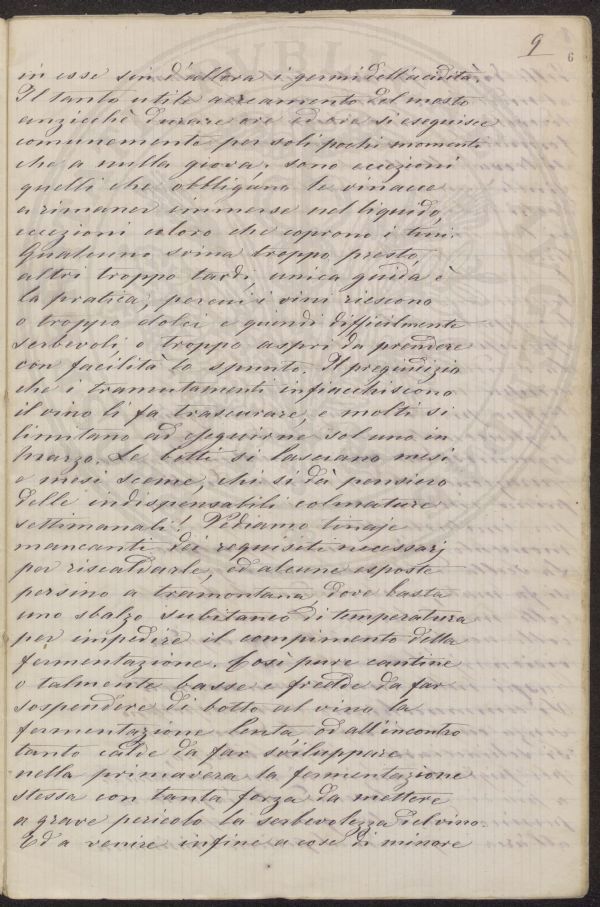 9
6
in esse sin d'allora i germi dell'acidità.
Il tanto utile aereamento del mosto
anzichè durare ore ed ore si eseguisce
comunemente per soli pochi momenti
che a nulla giova; sono eccezioni
quelli che obbligano le vinacce
a rimaner immerse nel liquido,
eccezioni coloro che coprono i tini.
Qualcuno svina troppo presto,
altri troppo tardi, unica guida è
la pratica, per cui i vini riescono
o troppo dolci e quindi difficilmente
serbevoli, o troppo aspri da prendere
con facilità lo spunto. Il pregiudizio
che i tramutamenti infiacchiscono
il vino li fa trascurare, e molti si
limitano ad eseguirne sol uno in
Marzo. Le botti si lasciano mesi
e mesi sceme, chi si dà pensiero
delle indispensabili colmature
settimanali! Vediamo tinaje
mancanti dei requisiti necessarj
per riscaldarle, ed alcune esposte
persino a tramontana dove basta
uno sbalzo subitaneo di temperatura
per impedire il compimento della
fermentazione. Così pure cantine
o talmente basse e fredde da far
sospendere di botto al vino la
fermentazione lenta od all'incontro
tanto calde da far sviluppare
nella primavera la fermentazione
stessa con tanta forza da mettere
a grave pericolo la serbevolezza del vino.
Ed a venire infine a cose di minore